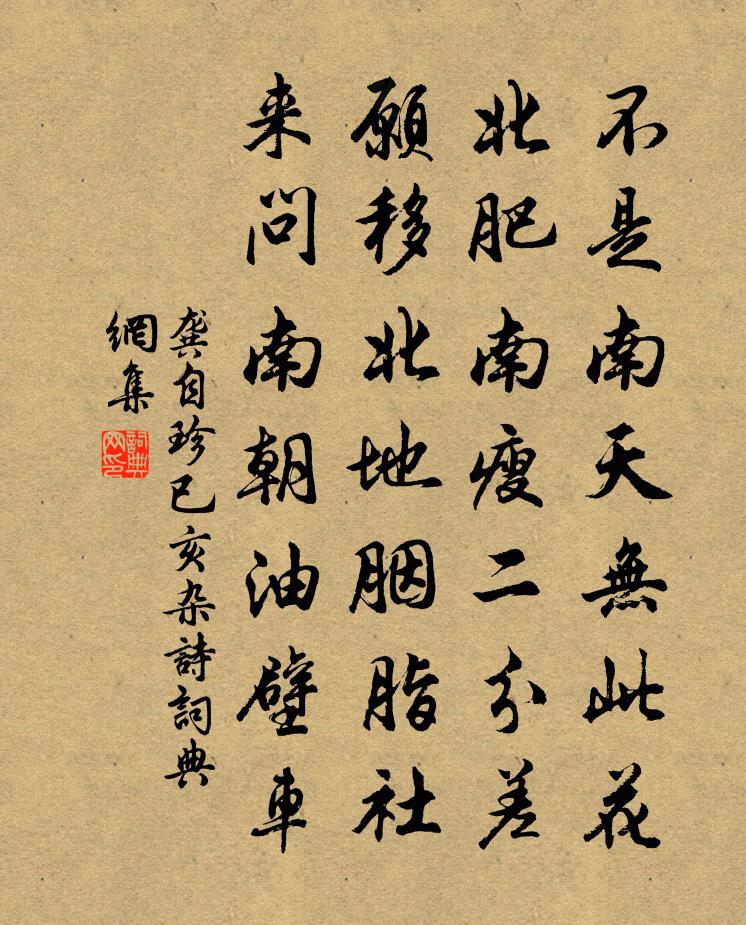 不是南天無此花
北肥南瘦二分差
願移北地胭脂社
来問南朝油壁車
龚自珍已亥杂詩詞典
網集
詞典
网印